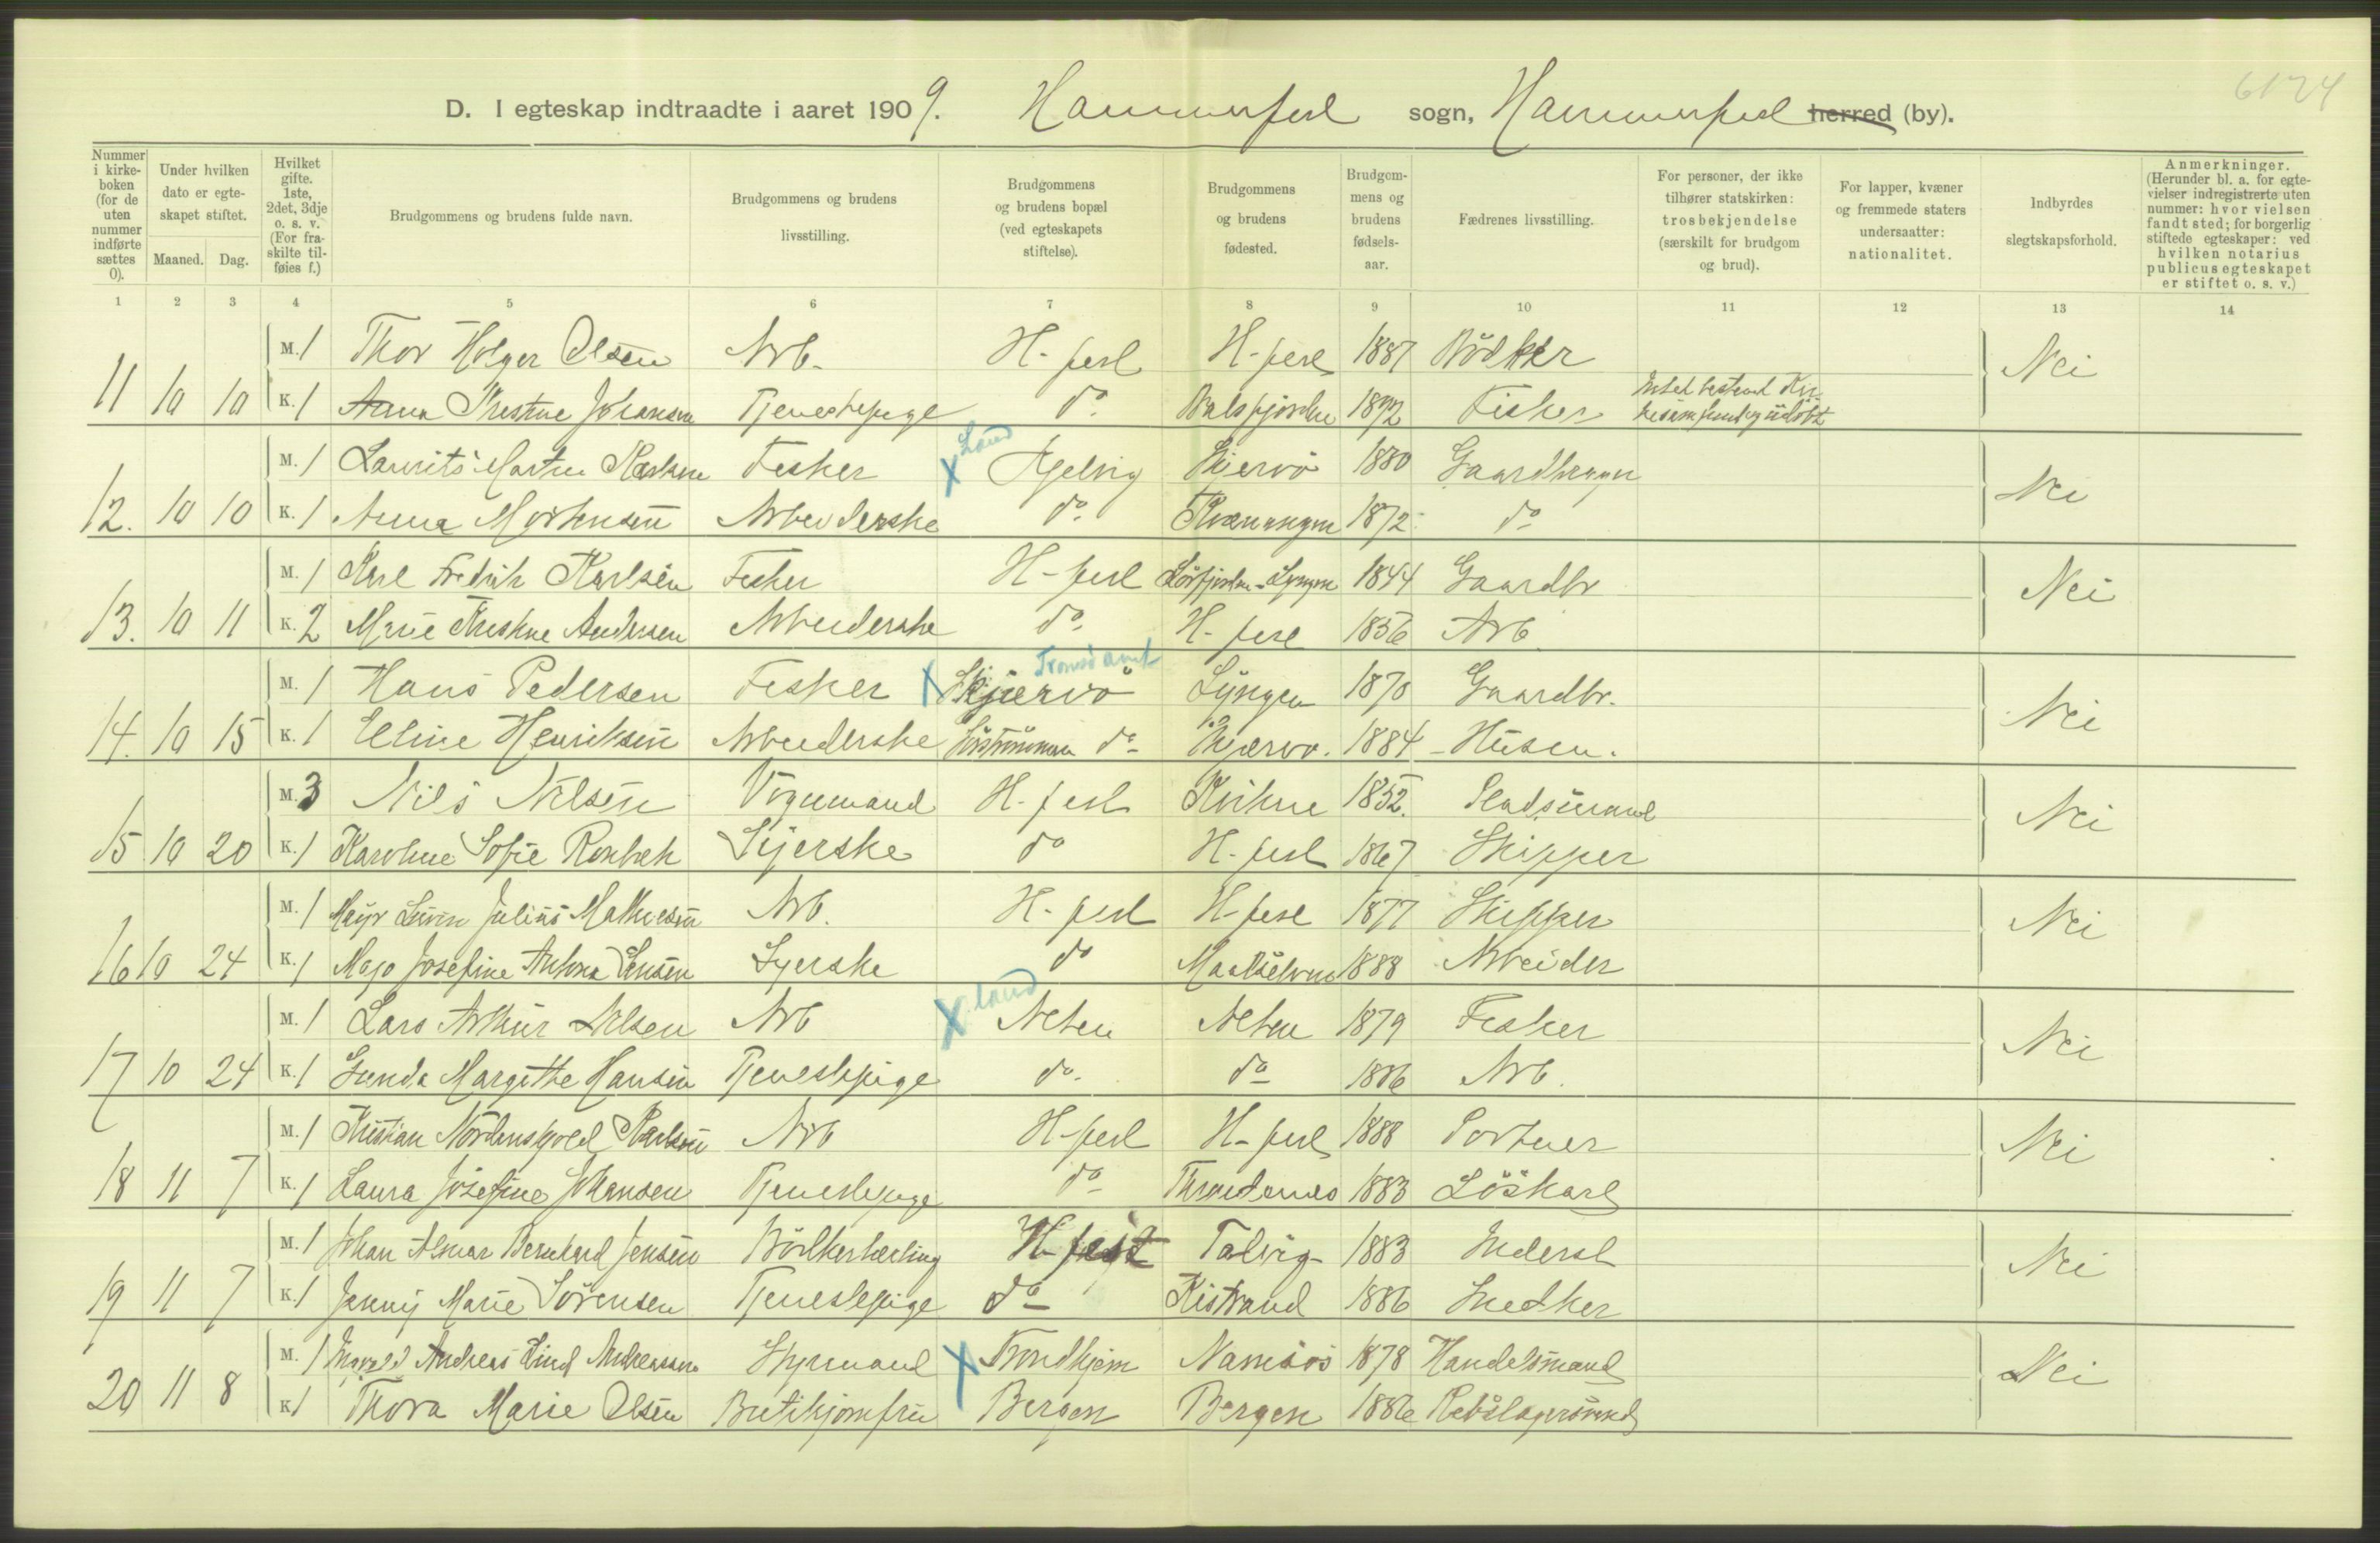 6124
D. I egteskap indtraadte i aaret 1909. Hammerfest sogn, Hammerfest herred (by).
Nummer i kirkeboken (for de uten nummer indførte sættes 0).
Under hvilken dato er egteskapet stiftet.
Maaned. Dag.
Hvilket gifte. 1ste, 2det, 3dje o. s. v. (For fraskilte tilføies f.)
Brudgommens og brudens fulde navn.
Brudgommens og brudens livsstilling.
Brudgommens og brudens bopæl (ved egteskapets stiftelse).
Brudgommens og brudens fødested.
Brudgommens og brudens fødselsaar.
Fædrenes livsstilling.
For personer, der ikke tilhører statskirken: trosbekjendelse (særskilt for brudgom og brud).
For lapper, kvæner og fremmede staters undersaatter: nationalitet.
Indbyrdes slegtskapsforhold.
Anmerkninger. (Herunder bl. a. for egtevielser indregistrerte uten nummer: hvor vielsen fandt sted; for borgerlig stiftede egteskaper: ved hvilken notarius publicus egteskapet er stiftet o. s. v.)
1 2 3 4 5 6 7 8 9 10 11 12 13 14
M. 1 Thor Holger Olsen Arb. H-fest H-fest 1887 Bödker Nei
11 10 10 K. 1 Anna Kristine Johansen Tjenestepige do. Balsfjorden 1892 Fisker
Land
M. 1 Laurits Martin Fisker X Kjelvig Skjervö 1880 Gaardbruger Nei
12. 10 10 K. 1 Anna Mortensen Arbeiderske do. Kvænangen 1872 do
M. 1 Karl Fredrik Karlsen Fisker H-fest Lyngen 1844 Gaardbr Nei
13. 10 11 K. 2 Marie Kristine Andersen Arbeiderske do. H-fest 1856 Arb
Tromsö amt
M. 1 Hans Pedersen Fisker X Skjærvö Lyngen 1870 Gaardbr. Nei
14. 10 15 K. 1 Elline Henriksen Arbeiderske do Skjærvö. 1884 Husm.
M. 3 Nils Nilsen Vognmand H-fest Kvikne 1852. Pladsmand Nei
15 10 20 K. 1 Karoline Sofie Rønbek Syerske do H-fest 1867 Skipper
M. 1 Julius Mathiesen Arb. H-fest H-fest 1877 Skipper Nei
16 10 24 K. 1 Josefine Antona Jensen Syerske do Maalselven 1888 Arbeider
land
M. 1 Lars Arthur Nilsen Arb X 1879 Fisker Nei
17 10 24 K. 1 Gunda Margithe Hansen Tjenestepige do. do 1886 Arb.
M. 1 Kristian Nordenskjold Karlsen Arb H-fest H-fest 1888 Portner Nei
18 11 7 K. 1 Laura Josefine Johansen Tjenestepige do Throndenes 1883 Löskarl
M. 1 Johan Almar Bernhard Jensen Bödkerlærling H-fest Talvig 1883 Inderst Nei
19 11 7 K. 1 Jenny Marie Sörensen Tjenestepige do Kistrand 1886 Snedker
M. 1 Ingvald Andreas Lind Andreassen Styrmand X Trondhjem Namsos 1878 Handelsmand Nei
20 11 8 K. 1 Thora Marie Olsen Butikjomfru Bergen Bergen 1886 Rebslagersvend